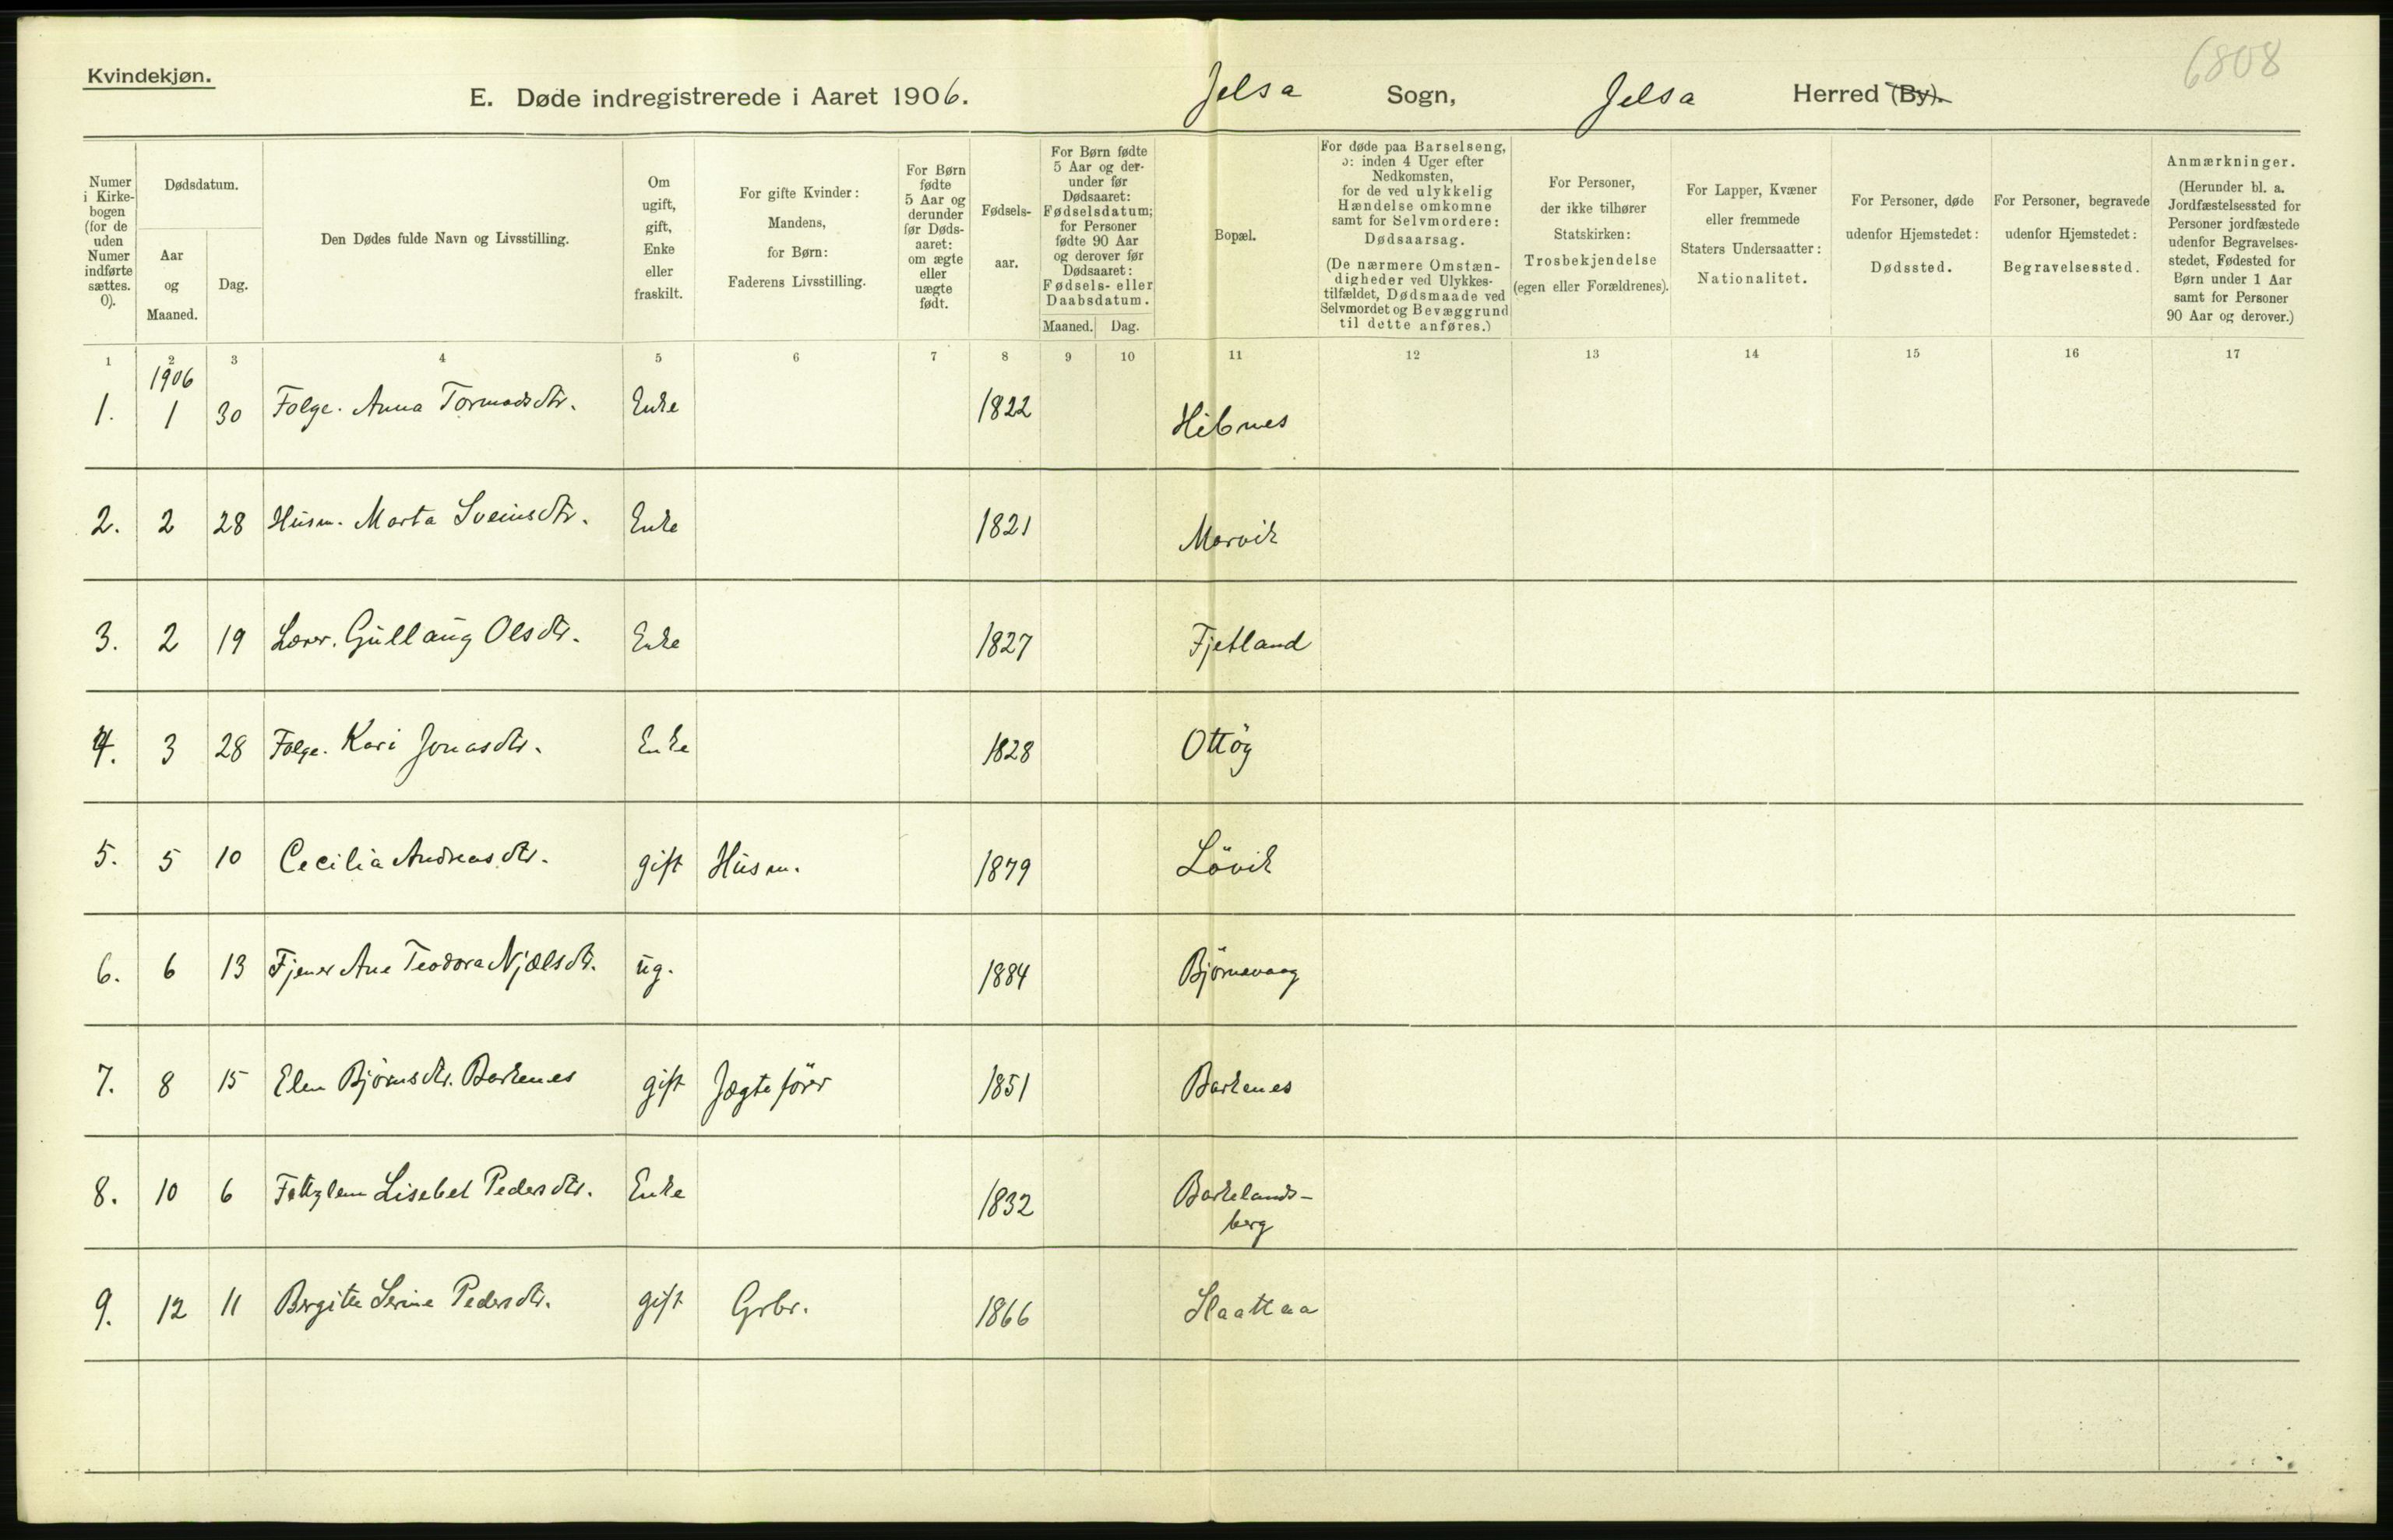 Kvindekjøn.
6808
E. Døde indregistrerede i Aaret 1906. Jelsa Sogn, Jelsa Herred (By).
Numer i Kirke-bogen (for de uden Numer indførte sættes. 0).
Dødsdatum.
Aar og Maaned.
Dag.
Den Dødes fulde Navn og Livsstilling.
Om ugift, gift, Enke eller fraskilt.
For gifte Kvinder: Mandens, for Børn: Faderens Livsstilling.
For Børn fødte 5 Aar og derunder før Døds-aaret: om ægte eller uægte født.
Fødsels-aar.
For Børn fødte 5 Aar og der-under før Dødsaaret: Fødselsdatum; for Personer fødte 90 Aar og derover før Dødsaaret: Fødsels- eller Daabsdatum.
Maaned. Dag.
Bopæl.
For døde paa Barselseng, ɔ: inden 4 Uger efter Nedkomsten, for de ved ulykkelig Hændelse omkomne samt for Selvmordere: Dødsaarsag. (De nærmere Omstæn-digheder ved Ulykkes-tilfældet, Dødsmaade ved Selvmordet og Bevæggrund til dette anføres.)
For Personer, der ikke tilhører Statskirken: Trosbekjendelse (egen eller Forældrenes).
For Lapper, Kvæner eller fremmede Staters Undersaatter: Nationalitet.
For Personer, døde udenfor Hjemstedet: Dødssted.
For Personer, begravede udenfor Hjemstedet: Begravelsessted.
Anmærkninger. (Herunder bl. a. Jordfæstelsessted for Personer jordfæstede udenfor Begravelses-stedet, Fødested for Børn under 1 Aar samt for Personer 90 Aar og derover.)
1 2 3 4 5 6 7 8 9 10 11 12 13 14 15 16 17
1906
1. 1 30 Folge. Anna Tormodsdtr. Enke 1822 Hibnes
2. 2 28 Husm. Marta Sveinsdtr. Enke 1821 Marvik
3. 2 19 Lærer. Gullaug Olsdtr. Enke 1827 Fjetland
4. 3 28 Folge. Kari Jonasdtr. Enke 1828 Ottöy
5. 5 10 Cecilia Andreasdtr. gift Husm. 1879 Lövik
6. 6 13 Tjener Ane Teodora Njælsdtr. ug. 1884 Björnevaag
7. 8 15 Elen Björnsdtr. Barkenes gift Jægteförer 1851 Barkenes
8. 10 6 Fattiglem Lisebet Pedersdtr. Enke 1832 Barkelands-
berg
9. 12 11 Bergite Serine Pedersdtr. gift Grbr. 1866 Slaattaa